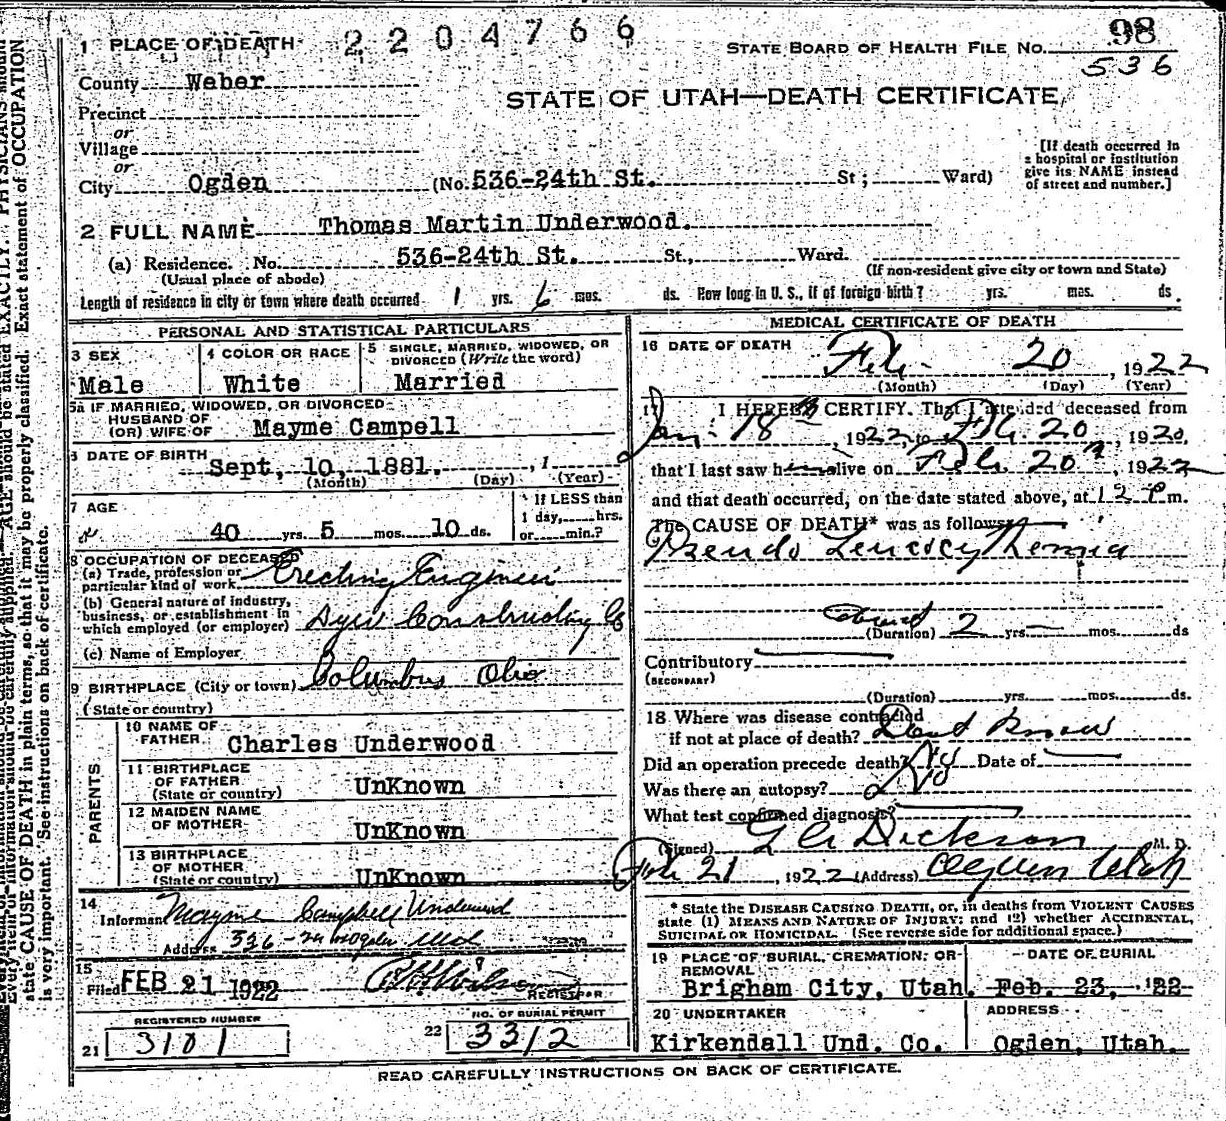 2204766
98
STATE BOARD OF HEALTH FILE No.
536
STATE OF UTAH—DEATH CERTIFICATE
1 PLACE OF DEATH
County Weber
Precinct
or
Village
or
City Ogden (No. 536-24th St. St; Ward)
[If death occurred in
a hospital or institution
give its NAME instead
of street and number.]
2 FULL NAME Thomas Martin Underwood.
(a) Residence. No. 536-24th St. St., Ward.
(Usual place of abode) (If non-resident give city or town and State)
Length of residence in city or town where death occurred 1 yrs. 6 mos. ds. How long in U. S., if of foreign birth? yrs. mos. ds.
PERSONAL AND STATISTICAL PARTICULARS
3 SEX
Male
4 COLOR OR RACE
White
5 SINGLE, MARRIED, WIDOWED, OR
DIVORCED (Write the word)
Married
5a IF MARRIED, WIDOWED, OR DIVORCED
HUSBAND OF
(OR) WIFE OF Mayme Campell
6 DATE OF BIRTH
Sept, 10, 1881. , 1
(Month) (Day) (Year)
7 AGE
40 yrs. 5 mos. 10 ds.
If LESS than
1 day, hrs.
or min.?
8 OCCUPATION OF DECEASED
(a) Trade, profession or
particular kind of work Erecting Engineer
(b) General nature of industry,
business, or establishment in
which employed (or employer) Constructing Co
(c) Name of Employer
9 BIRTHPLACE (City or town) Columbus Ohio
(State or country)
PARENTS
10 NAME OF
FATHER Charles Underwood
11 BIRTHPLACE
OF FATHER
(State or country) UnKnown
12 MAIDEN NAME
OF MOTHER UnKnown
13 BIRTHPLACE
OF MOTHER
(State or country) UnKnown
14
Informant Mayme Campbell Underwood
Address 536-24 Ogden Utah
15
Filed FEB 21 1922
R H Wilson
REGISTRAR
REGISTERED NUMBER
21 3101
NO. OF BURIAL PERMIT
22 3312
MEDICAL CERTIFICATE OF DEATH
16 DATE OF DEATH
Feb. 20, 1922
(Month) (Day) (Year)
17 I HEREBY CERTIFY. That I attended deceased from
Jan. 18th, 1922, to Feb 20, 1920,
that I last saw h alive on Feb. 20th, 1922
and that death occurred, on the date stated above, at 12 P m.
The CAUSE OF DEATH* was as follows:
Pseudo Leucocythemia
about
(Duration) 2 yrs. mos. ds
Contributory
(SECONDARY)
(Duration) yrs. mos. ds.
18 Where was disease contracted
if not at place of death? Dont Know
Did an operation precede death? No Date of
Was there an autopsy? No
What test confirmed diagnosis?
(Signed) Dickson M. D.
Feb 21, 1922 (Address) Ogden Utah
* State the DISEASE CAUSING DEATH, or, in deaths from VIOLENT CAUSES
state (1) MEANS AND NATURE OF INJURY; and (2) whether ACCIDENTAL,
SUICIDAL OR HOMICIDAL. (See reverse side for additional space.)
19 PLACE OF BURIAL, CREMATION, OR
REMOVAL
Brigham City, Utah.
DATE OF BURIAL
Feb. 23, 122
20 UNDERTAKER
Kirkendall Und. Co.
ADDRESS
Ogden, Utah.
READ CAREFULLY INSTRUCTIONS ON BACK OF CERTIFICATE.
state CAUSE OF DEATH in plain terms, so that it may be properly classified. Exact statement of OCCUPATION
is very important. See instructions on back of certificate.